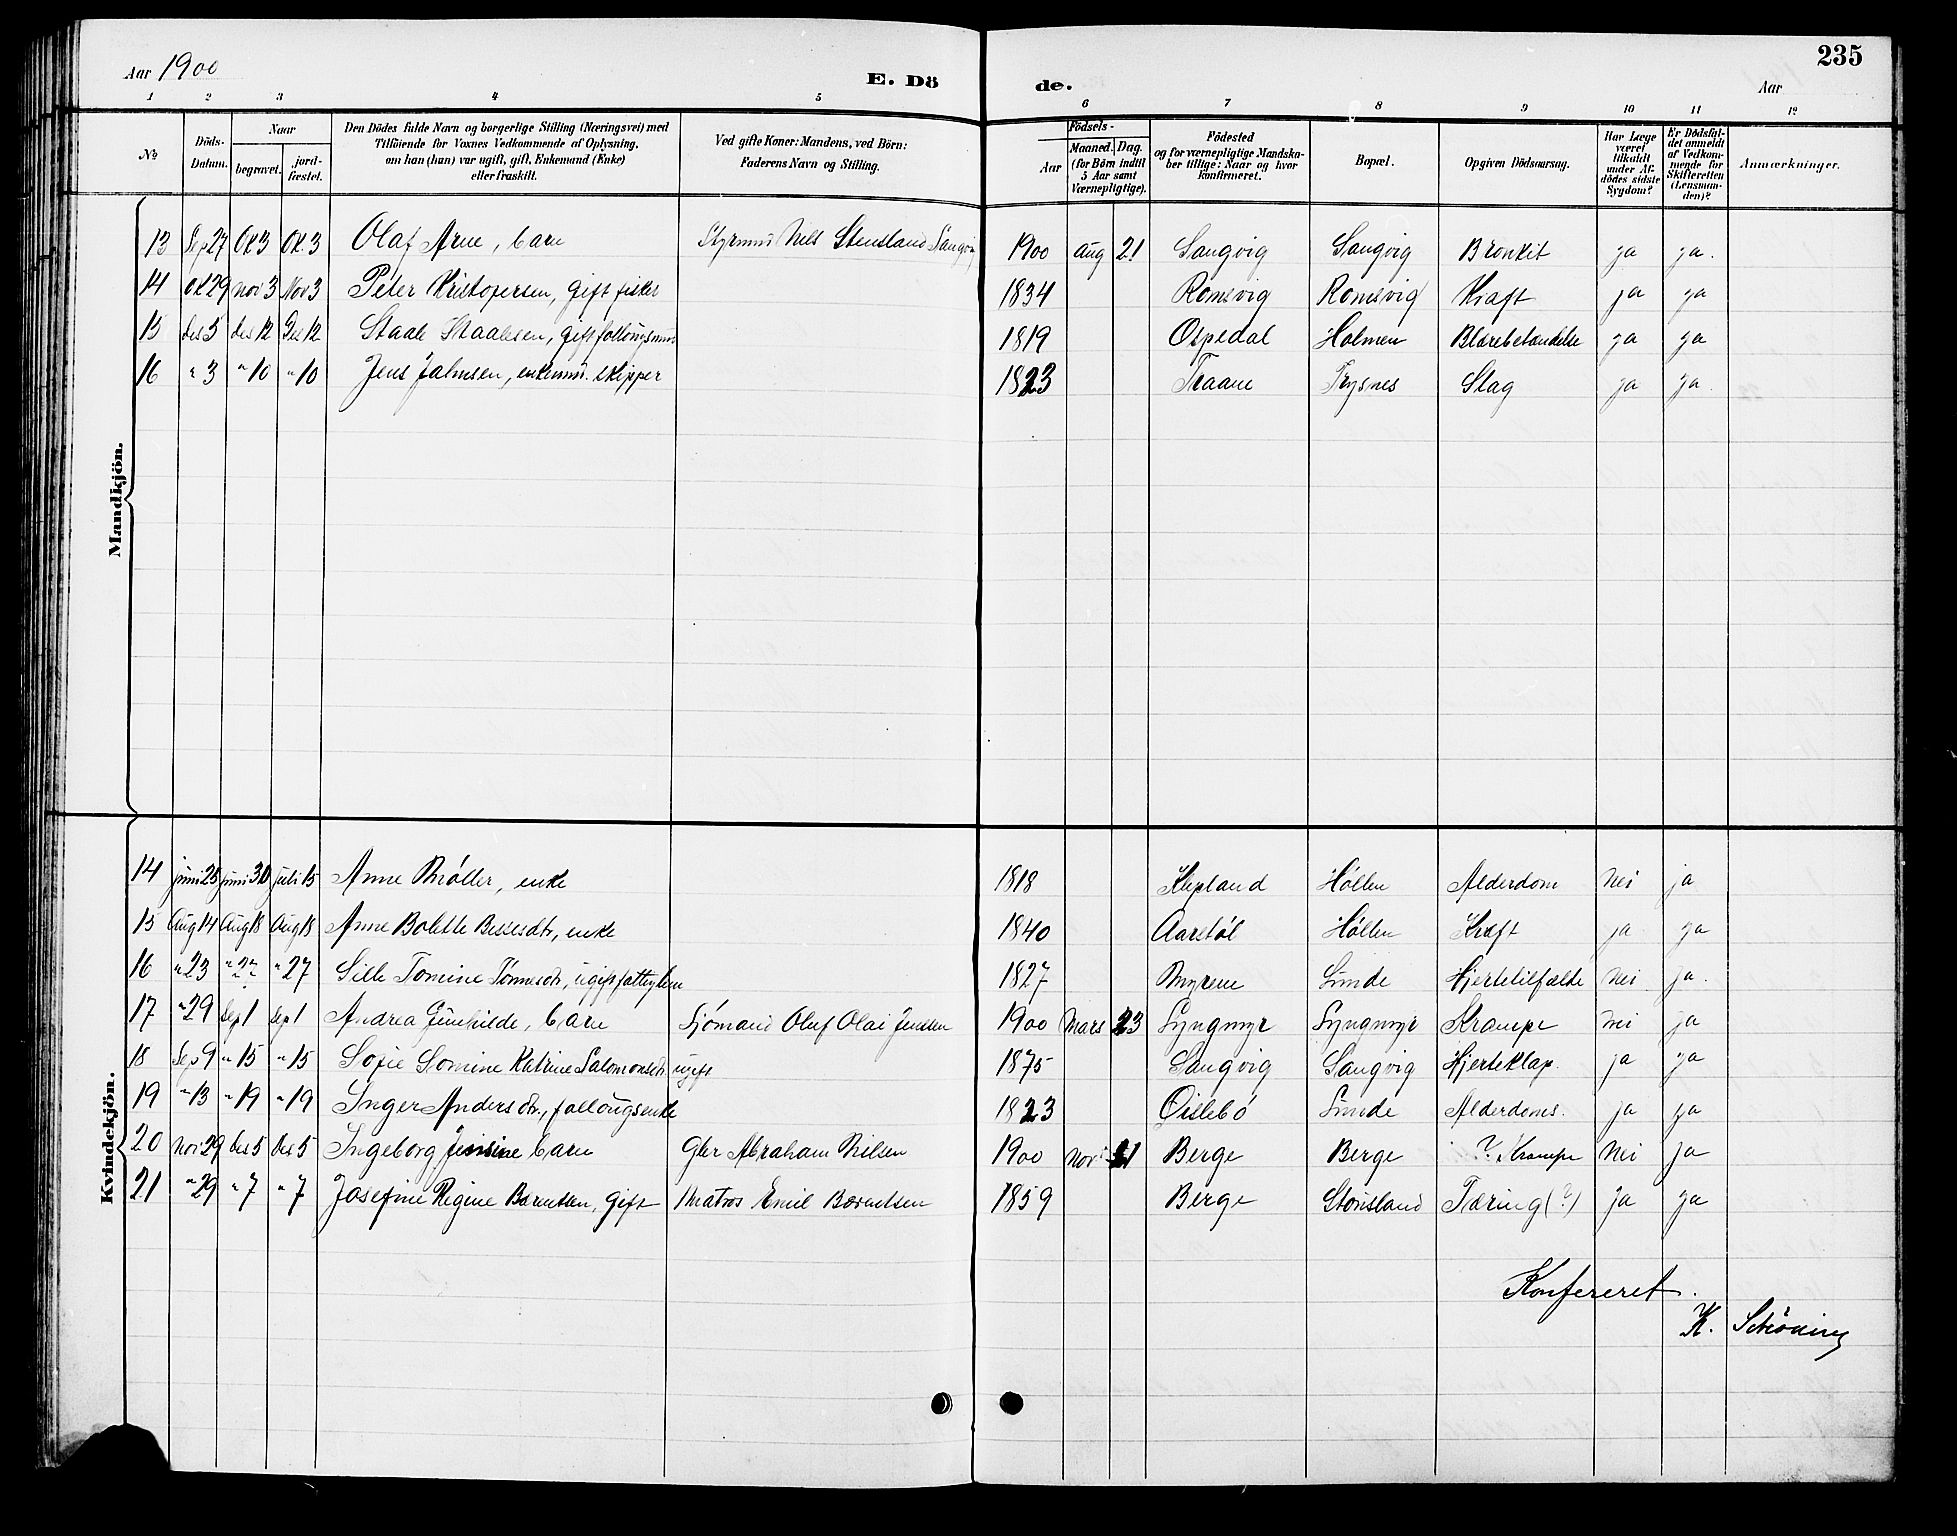 Aar 1900
E. Dö
de.
235
Aar
1 2 3 4 5 6 7 8 9 10 11 12
No
Döds-Datum.
Naar
begravet.
jord-fæstet.
Den Dödes fulde Navn og borgerlige Stilling (Næringsvei) med Tilföiende for Voxnes Vedkommende af Oplysning, om han (hun) var ugift, gift, Enkemand (Enke) eller fraskilt.
Ved gifte Koner: Mandens, ved Börn: Faderens Navn og Stilling.
Födsels-
Aar
Maaned. Dag.
(for Börn indtil 5 Aar samt Værnepligtige).
Födested
og for værnepligtige Mandskaber tillige: Naar og hvor konfirmeret.
Bopæl.
Opgiven Dödsaarsag.
Har Læge været tilkaldt under Afdödes sidste Sygdom?
Er Dödsfaldet anmeldt af Vedkommende for Skifteretten (Lensmanden)?
Anmærkninger.
Mandkjön.
13 Sep 27 Ok 3 Ok. 3 Olaf Arne, barn Styrmd Nels Stensland Langvig 1900 aug 21 Langvig Langvig Bronkit ja ja.
14 Ok 29 nov 3 Nov 3 Peter Kristofersen, gift fisker 1834 Romsvig Romsvig Kræft ja ja
15 des 5 des 12 Des 12 Staale Staalesen, gift follougsmd 1819 Ospedal Holmen Blærebetændelse ja ja
16 " 3 " 10 " 10 Jens Jahnsen, enkemd. skipper 1823 Traane Trysnes Slag ja ja.
Kvindekjön.
14 juni 25 juni 30 juli 15 Anne Møller, enke 1818 Klepland Høllen Alderdom Nei ja
15 Aug 14 Aug 18 Aug 18 Anne Bolette Bessesdtr, enke 1840 Aarstøl Høllen Kræft ja ja
16 " 23 " 27 " 27 Sille Tomine Tønnesdtr, ugift fattiglem 1827 Myrene Lunde Hjertetilfælde Nei ja.
17 " 29 Sep 1 Sep 1 Andrea Gunhilde, barn Sjømand Oluf Olai Jensen 1900 Mars 23 Lyngmyr Lyngmyr Krampe nei ja
18 Sep 9 " 15 " 15 Sofie Somine Katrine Salomonsdtr ugift 1875 Langvig Langvig Hjerteklap. ja ja
19 " 13 " 19 " 19 Inger Andersdtr., follougsenke 1823 Øislebø Lunde Alderdoms. ja ja
20 Nov 29 Des 5 Des 5 Ingeborg Jensine barn Gbr Abraham Nilsen 1900 Nov 21 Berge Berge ? Krampe Nei Ja
21 " 29 " 7 " 7 Josefine Regine Berentsen, gift Matros Emil Berentsen 1859 Berge Stensland Tæring (?) Ja ja
Konfereret.
K. Schøning